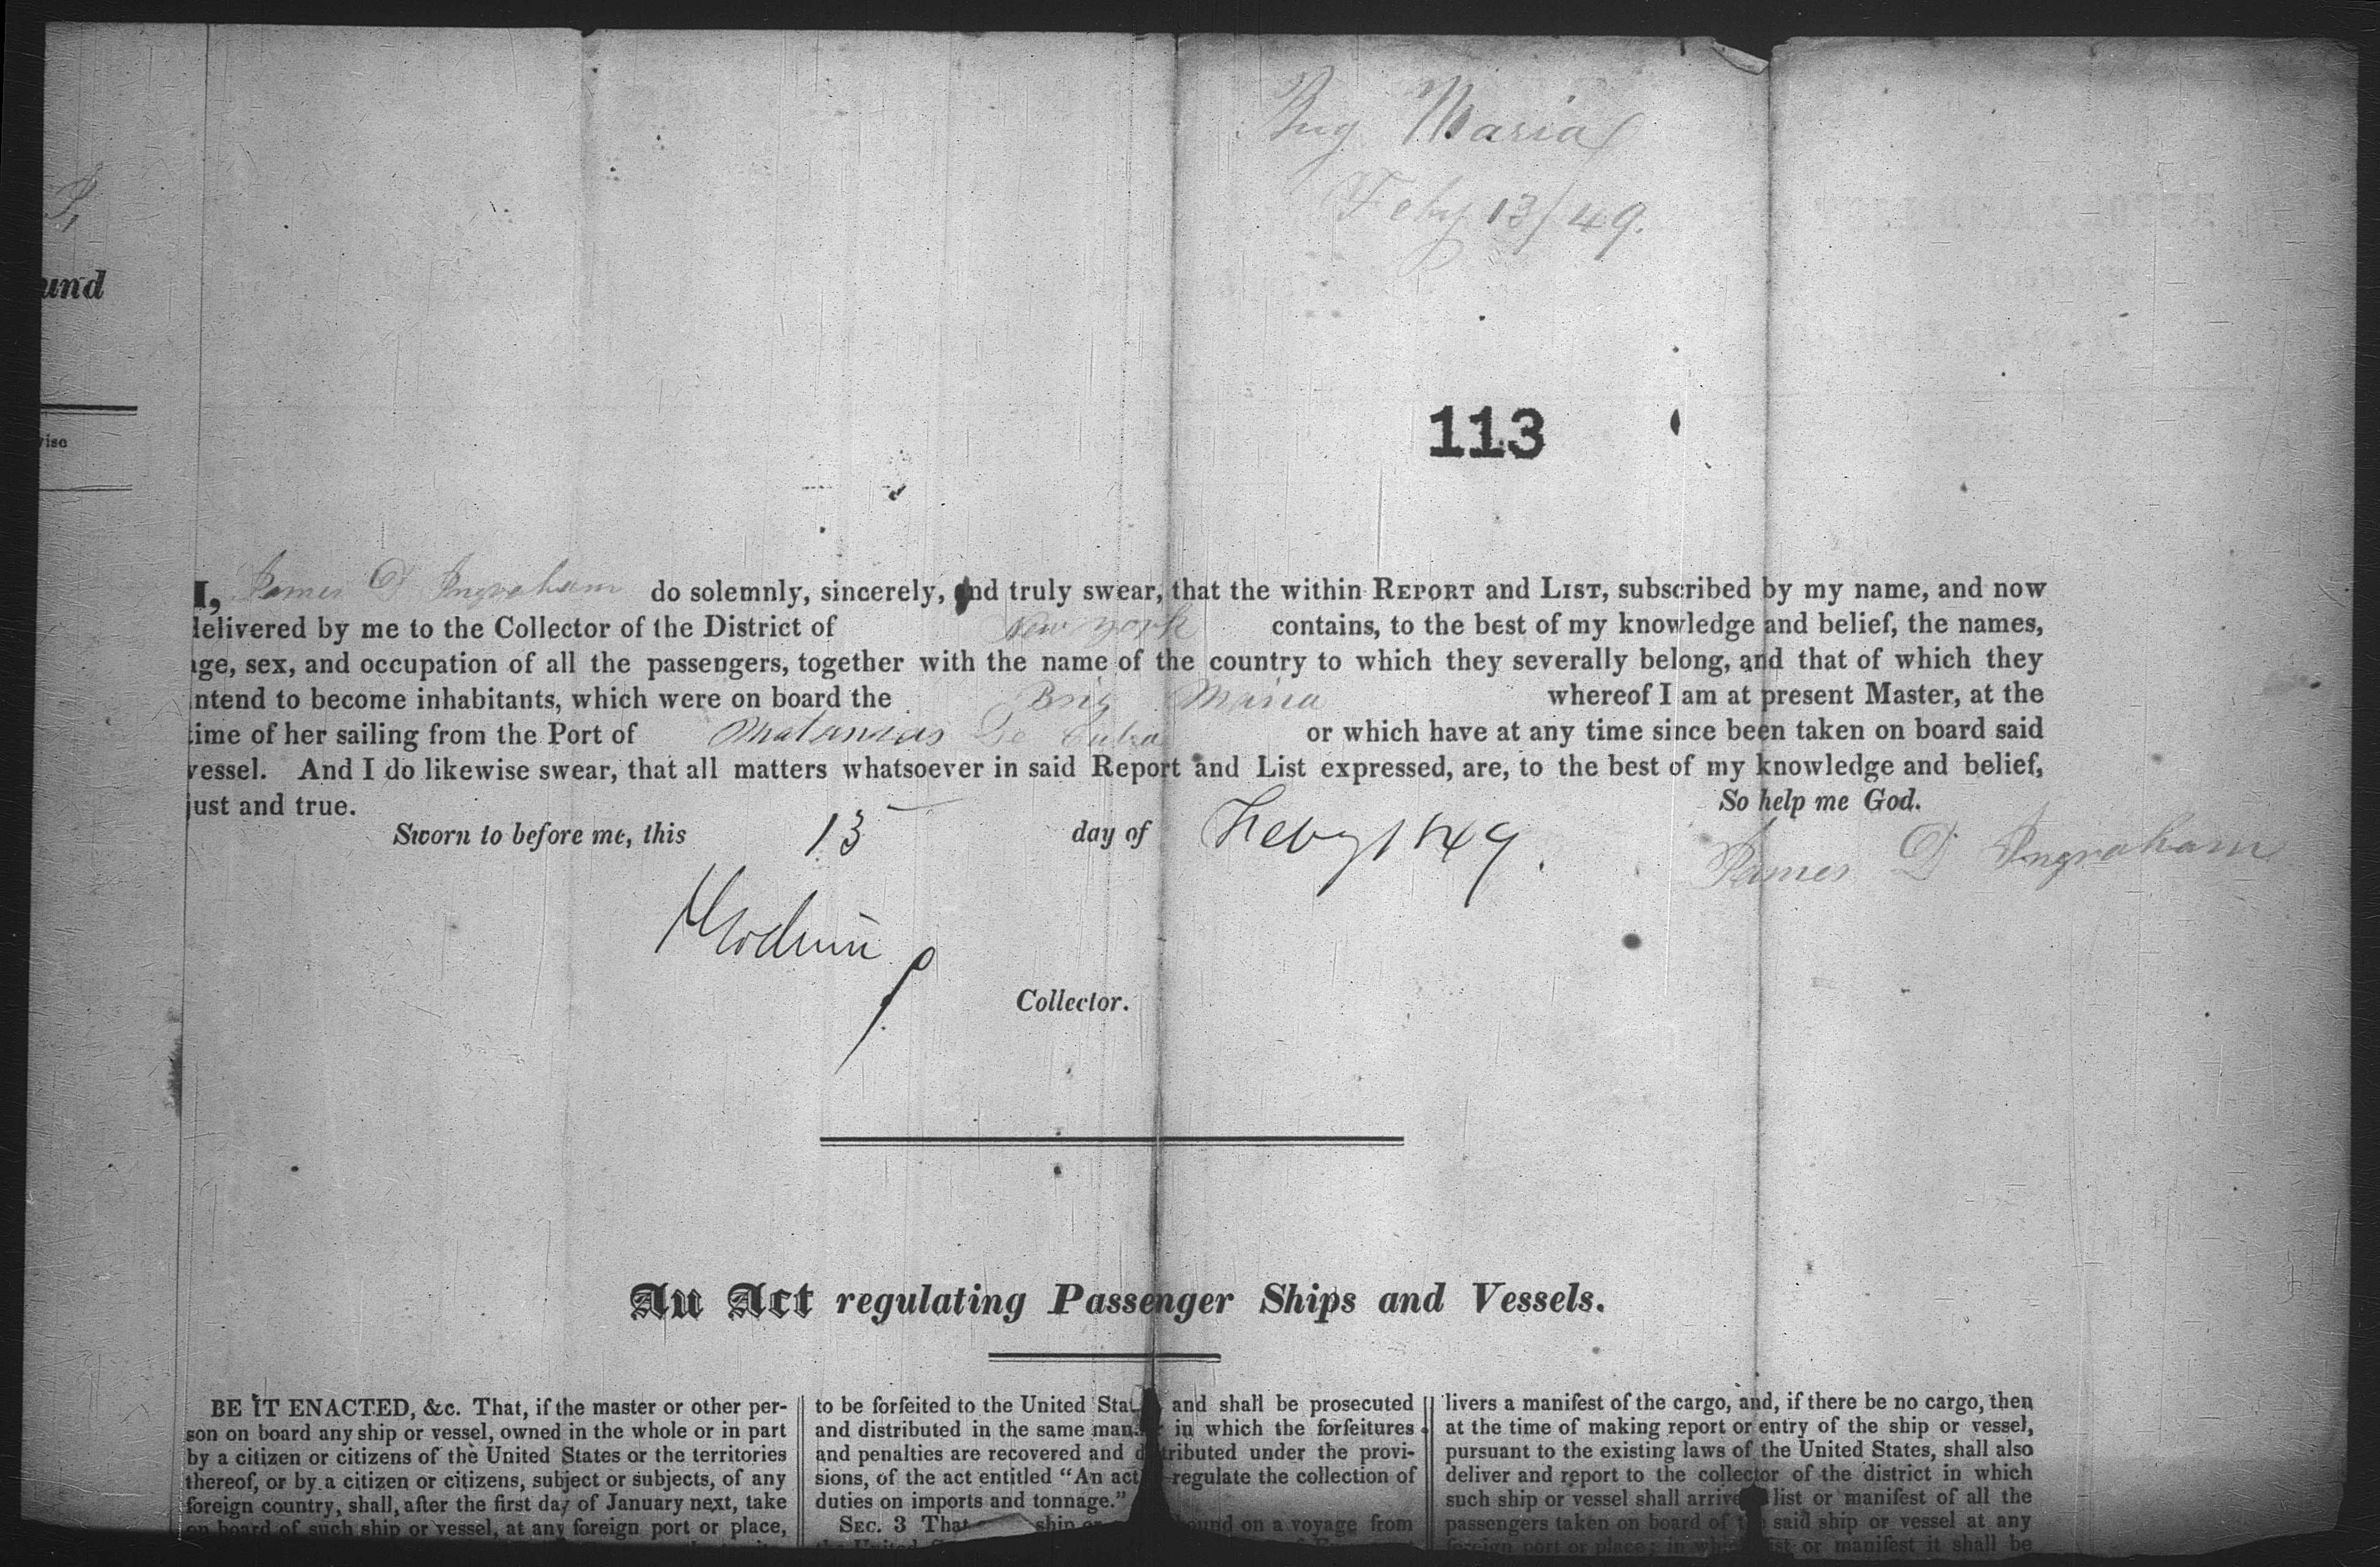 Brig Maria
Feby 13/49.
und
vise
113
I, James D Ingraham do solemnly, sincerely, and truly swear, that the within REPORT and LIST, subscribed by my name, and now
delivered by me to the Collector of the District of New York contains, to the best of my knowledge and belief, the names,
age, sex, and occupation of all the passengers, together with the name of the country to which they severally belong, and that of which they
intend to become inhabitants, which were on board the Brig Maria whereof I am at present Master, at the
time of her sailing from the Port of Matanzas De Cuba or which have at any time since been taken on board said
vessel. And I do likewise swear, that all matters whatsoever in said Report and List expressed, are, to the best of my knowledge and belief,
just and true. So help me God.
Sworn to before me, this 13 day of Feby 1849.
James D Ingraham
Collector.
An Act regulating Passenger Ships and Vessels.
BE IT ENACTED, &c. That, if the master or other per-
son on board any ship or vessel, owned in the whole or in part
by a citizen or citizens of the United States or the territories
thereof, or by a citizen or citizens, subject or subjects, of any
foreign country, shall, after the first day of January next, take
on board of such ship or vessel, at any foreign port or place,
to be forfeited to the United Stat and shall be prosecuted
and distributed in the same man in which the forfeitures
and penalties are recovered and d tributed under the provi-
sions, of the act entitled “An act regulate the collection of
duties on imports and tonnage.”
SEC. 3 That ship or bound on a voyage from
the United
livers a manifest of the cargo, and, if there be no cargo, then
at the time of making report or entry of the ship or vessel,
pursuant to the existing laws of the United States, shall also
deliver and report to the collector of the district in which
such ship or vessel shall arrive list or manifest of all the
passengers taken on board of the said ship or vessel at any
foreign port or place; in which list or manifest it shall be